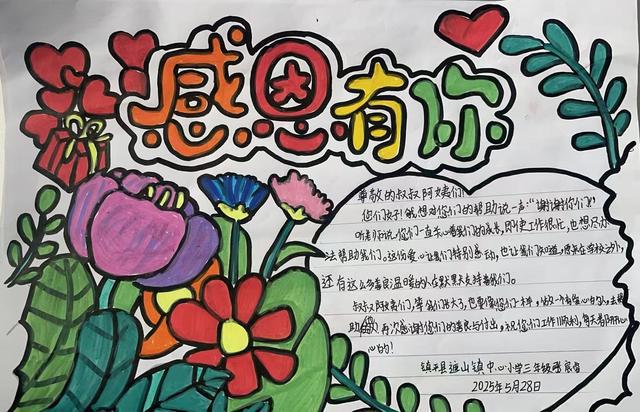 感恩有你
尊敬的叔叔阿姨们:
您们好!我想对您们的帮助说一声:“谢谢你们!”
听老师说,您们一直关心着我们的成长,即使工作很忙,也想尽办
法帮助我们。这份爱心让我们特别感动,也让我们知道,原来在学校之外,
还有这么多善良温暖的人在默默支持着我们。
叔叔阿姨们,等我们长大了,也要像您们一样,做一个有爱心的人,去帮
助 再次感谢您们的善良与付出,祝您们工作顺利,每天都开开心
心的!
镇平县遮山镇中心小学三年级
2025年5月28日